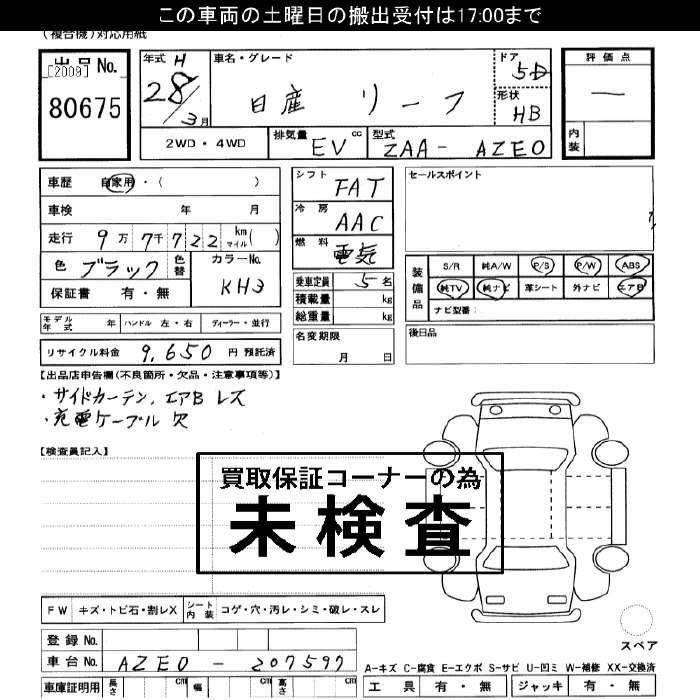 この車両の土曜日の搬出受付は17:00まで
(複合機)対応用紙
出品 No.
[2009]
80675
年式 H
28/3月
車名・グレード
日産 リーフ
ドア
5D
形状
HB
評価点
—
内装
2WD・4WD
排気量 EV cc
型式 ZAA- AZE0
車歴 自家用・( )
車検 年 月
走行 9万7千722 km マイル( )
色 ブラック 色替
カラーNo.
KH3
保証書 有・無
モデル年式 年 ハンドル 左・右 ディーラー・並行
リサイクル料金 9,650 円 預託済
シフト FAT
冷房 AAC
燃料 電気
乗車定員 5 名
積載量 kg
総重量 kg
名変期限
月 日
セールスポイント
装備品
S/R 純A/W P/S P/W ABS
純TV 純ナビ 革シート 外ナビ エアB
ナビ型番:
後日品
【出品店申告欄(不良箇所・欠品・注意事項等)】
・サイドカーテン、エアB レス
・充電ケーブル 欠
【検査員記入】
買取保証コーナーの為
未検査
FW キズ・トビ石・割レX シート内装 コゲ・穴・汚レ・シミ・破レ・スレ
登録 No.
車台 No. AZE0 - 207597
車庫証明用 長さ cm 幅 cm 高さ cm
スペア
A-キズ C-腐食 E-エクボ S-サビ U-凹ミ W-補修 XX-交換済
工具 有・無 ジャッキ 有・無